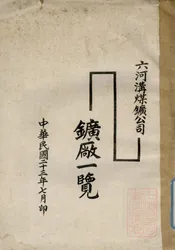 六河溝煤鑛公司
鑛廠一覽
中華民國二十三年七月印